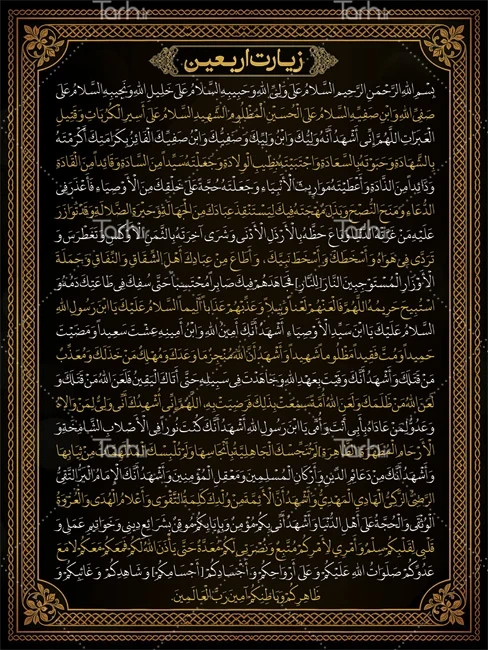 زیارت اربعین
بِسْمِ اللهِ الرَّحْمنِ الرَّحِیمِ السَّلامُ عَلى وَلِیِّ اللهِ وَحَبِیبِهِ السَّلامُ عَلى خَلِیلِ اللهِ وَنَجِیبِهِ السَّلامُ عَلى
صَفِیِّ اللهِ وَابْنِ صَفِیِّهِ السَّلامُ عَلى الْحُسَیْنِ الْمَظْلُومِ الشَّهِیدِ السَّلامُ عَلى أَسِیرِ الْكُرُباتِ وَقَتِیلِ
الْعَبَراتِ اللّهُمَّ إِنِّی أَشْهَدُ أَنَّهُ وَلِیُّكَ وَابْنُ وَلِیِّكَ وَصَفِیُّكَ وَابْنُ صَفِیِّكَ الْفَائِزُ بِكَرامَتِكَ أَكْرَمْتَهُ
بِالشَّهادَةِ وَحَبَوْتَهُ بِالسَّعادَةِ وَاجْتَبَیْتَهُ بِطِیبِ الْوِلادَةِ وَجَعَلْتَهُ سَیِّداً مِنَ السَّادَةِ وَقَائِداً مِنَ الْقَادَةِ
وَذَائِداً مِنَ الذَّادَةِ وَأَعْطَیْتَهُ مَوارِیثَ الْأَنْبِیَاءِ وَجَعَلْتَهُ حُجَّةً عَلى خَلْقِكَ مِنَ الْأَوْصِیَاءِ فَأَعْذَرَ فِی
الدُّعَاءِ وَمَنَحَ النُّصْحَ وَبَذَلَ مُهْجَتَهُ فِیكَ لِیَسْتَنْقِذَ عِبادَكَ مِنَ الْجَهالَةِ وَحَیْرَةِ الضَّلالَةِ وَقَدْ تَوازَرَ
عَلَیْهِ مَنْ غَرَّتْهُ الدُّنْیا وَباعَ حَظَّهُ بِالْأَرْذَلِ الْأَدْنى وَشَرى آخِرَتَهُ بِالثَّمَنِ الْأَوْكَسِ وَتَغَطْرَسَ وَ
تَرَدَّى فِی هَواهُ وَأَسْخَطَكَ وَأَسْخَطَ نَبِیَّكَ، وَأَطاعَ مِنْ عِبادِكَ أَهْلَ الشِّقاقِ وَالنِّفاقِ وَحَمَلَةَ
الْأَوْزارِ الْمُسْتَوْجِبِینَ النَّارَ [لِلنَّارِ] فَجاهَدَهُمْ فِیكَ صابِراً مُحْتَسِباً حَتَّى سُفِكَ فِی طاعَتِكَ دَمُهُ وَ
اسْتُبِیحَ حَرِیمُهُ اللّهُمَّ فَالْعَنْهُمْ لَعْناً وَبِیلاً وَعَذِّبْهُمْ عَذاباً أَلِیماً السَّلامُ عَلَیْكَ یَا ابْنَ رَسُولِ اللهِ
السَّلامُ عَلَیْكَ یَا ابْنَ سَیِّدِ الْأَوْصِیَاءِ أَشْهَدُ أَنَّكَ أَمِینُ اللهِ وَابْنُ أَمِینِهِ عِشْتَ سَعِیداً وَمَضَیْتَ
حَمِیداً وَمُتَّ فَقِیداً مَظْلُوماً شَهِیداً وَأَشْهَدُ أَنَّ اللهَ مُنْجِزٌ مَا وَعَدَكَ وَمُهْلِكٌ مَنْ خَذَلَكَ وَمُعَذِّبٌ
مَنْ قَتَلَكَ وَأَشْهَدُ أَنَّكَ وَفَیْتَ بِعَهْدِ اللهِ وَجاهَدْتَ فِی سَبِیلِهِ حَتَّى أَتَاكَ الْیَقِینُ فَلَعَنَ اللهُ مَنْ قَتَلَكَ وَ
لَعَنَ اللهُ مَنْ ظَلَمَكَ وَلَعَنَ اللهُ أُمَّةً سَمِعَتْ بِذلِكَ فَرَضِیَتْ بِهِ اللّهُمَّ إِنِّی أُشْهِدُكَ أَنِّی وَلِیٌّ لِمَنْ والاهُ
وَعَدُوٌّ لِمَنْ عاداهُ بِأَبِی أَنْتَ وَأُمِّی یَا ابْنَ رَسُولِ اللهِ أَشْهَدُ أَنَّكَ كُنْتَ نُوراً فِی الْأَصْلابِ الشَّامِخَةِ وَ
الْأَرْحامِ الْمُطَهَّرَةِ لَمْ تُنَجِّسْكَ الْجاهِلِیَّةُ بِأَنْجاسِها وَلَمْ تُلْبِسْكَ الْمُدْلَهِمَّاتُ مِنْ ثِیابِها
وَأَشْهَدُ أَنَّكَ مِنْ دَعائِمِ الدِّینِ وَأَرْكانِ الْمُسْلِمِینَ وَمَعْقِلِ الْمُؤْمِنِینَ وَأَشْهَدُ أَنَّكَ الْإِمامُ الْبَرُّ التَّقِیُّ
الرَّضِیُّ الزَّكِیُّ الْهادِی الْمَهْدِیُّ وَأَشْهَدُ أَنَّ الْأَئِمَّةَ مِنْ وُلْدِكَ كَلِمَةُ التَّقْوى وَأَعْلامُ الْهُدى وَالْعُرْوَةُ
الْوُثْقى وَالْحُجَّةُ عَلى أَهْلِ الدُّنْیا وَأَشْهَدُ أَنِّی بِكُمْ مُؤْمِنٌ وَبِإِیابِكُمْ مُوقِنٌ بِشَرائِعِ دِینِی وَخَواتِیمِ عَمَلِی وَ
قَلْبِی لِقَلْبِكُمْ سِلْمٌ وَأَمْرِی لِأَمْرِكُمْ مُتَّبِعٌ وَنُصْرَتِی لَكُمْ مُعَدَّةٌ حَتَّى یَأْذَنَ اللهُ لَكُمْ فَمَعَكُمْ مَعَكُمْ لا مَعَ
عَدُوِّكُمْ صَلَواتُ اللهِ عَلَیْكُمْ وَعَلى أَرْواحِكُمْ وَأَجْسادِكُمْ [أَجْسامِكُمْ] وَشاهِدِكُمْ وَغائِبِكُمْ وَ
ظاهِرِكُمْ وَباطِنِكُمْ آمِینَ رَبَّ الْعالَمِینَ